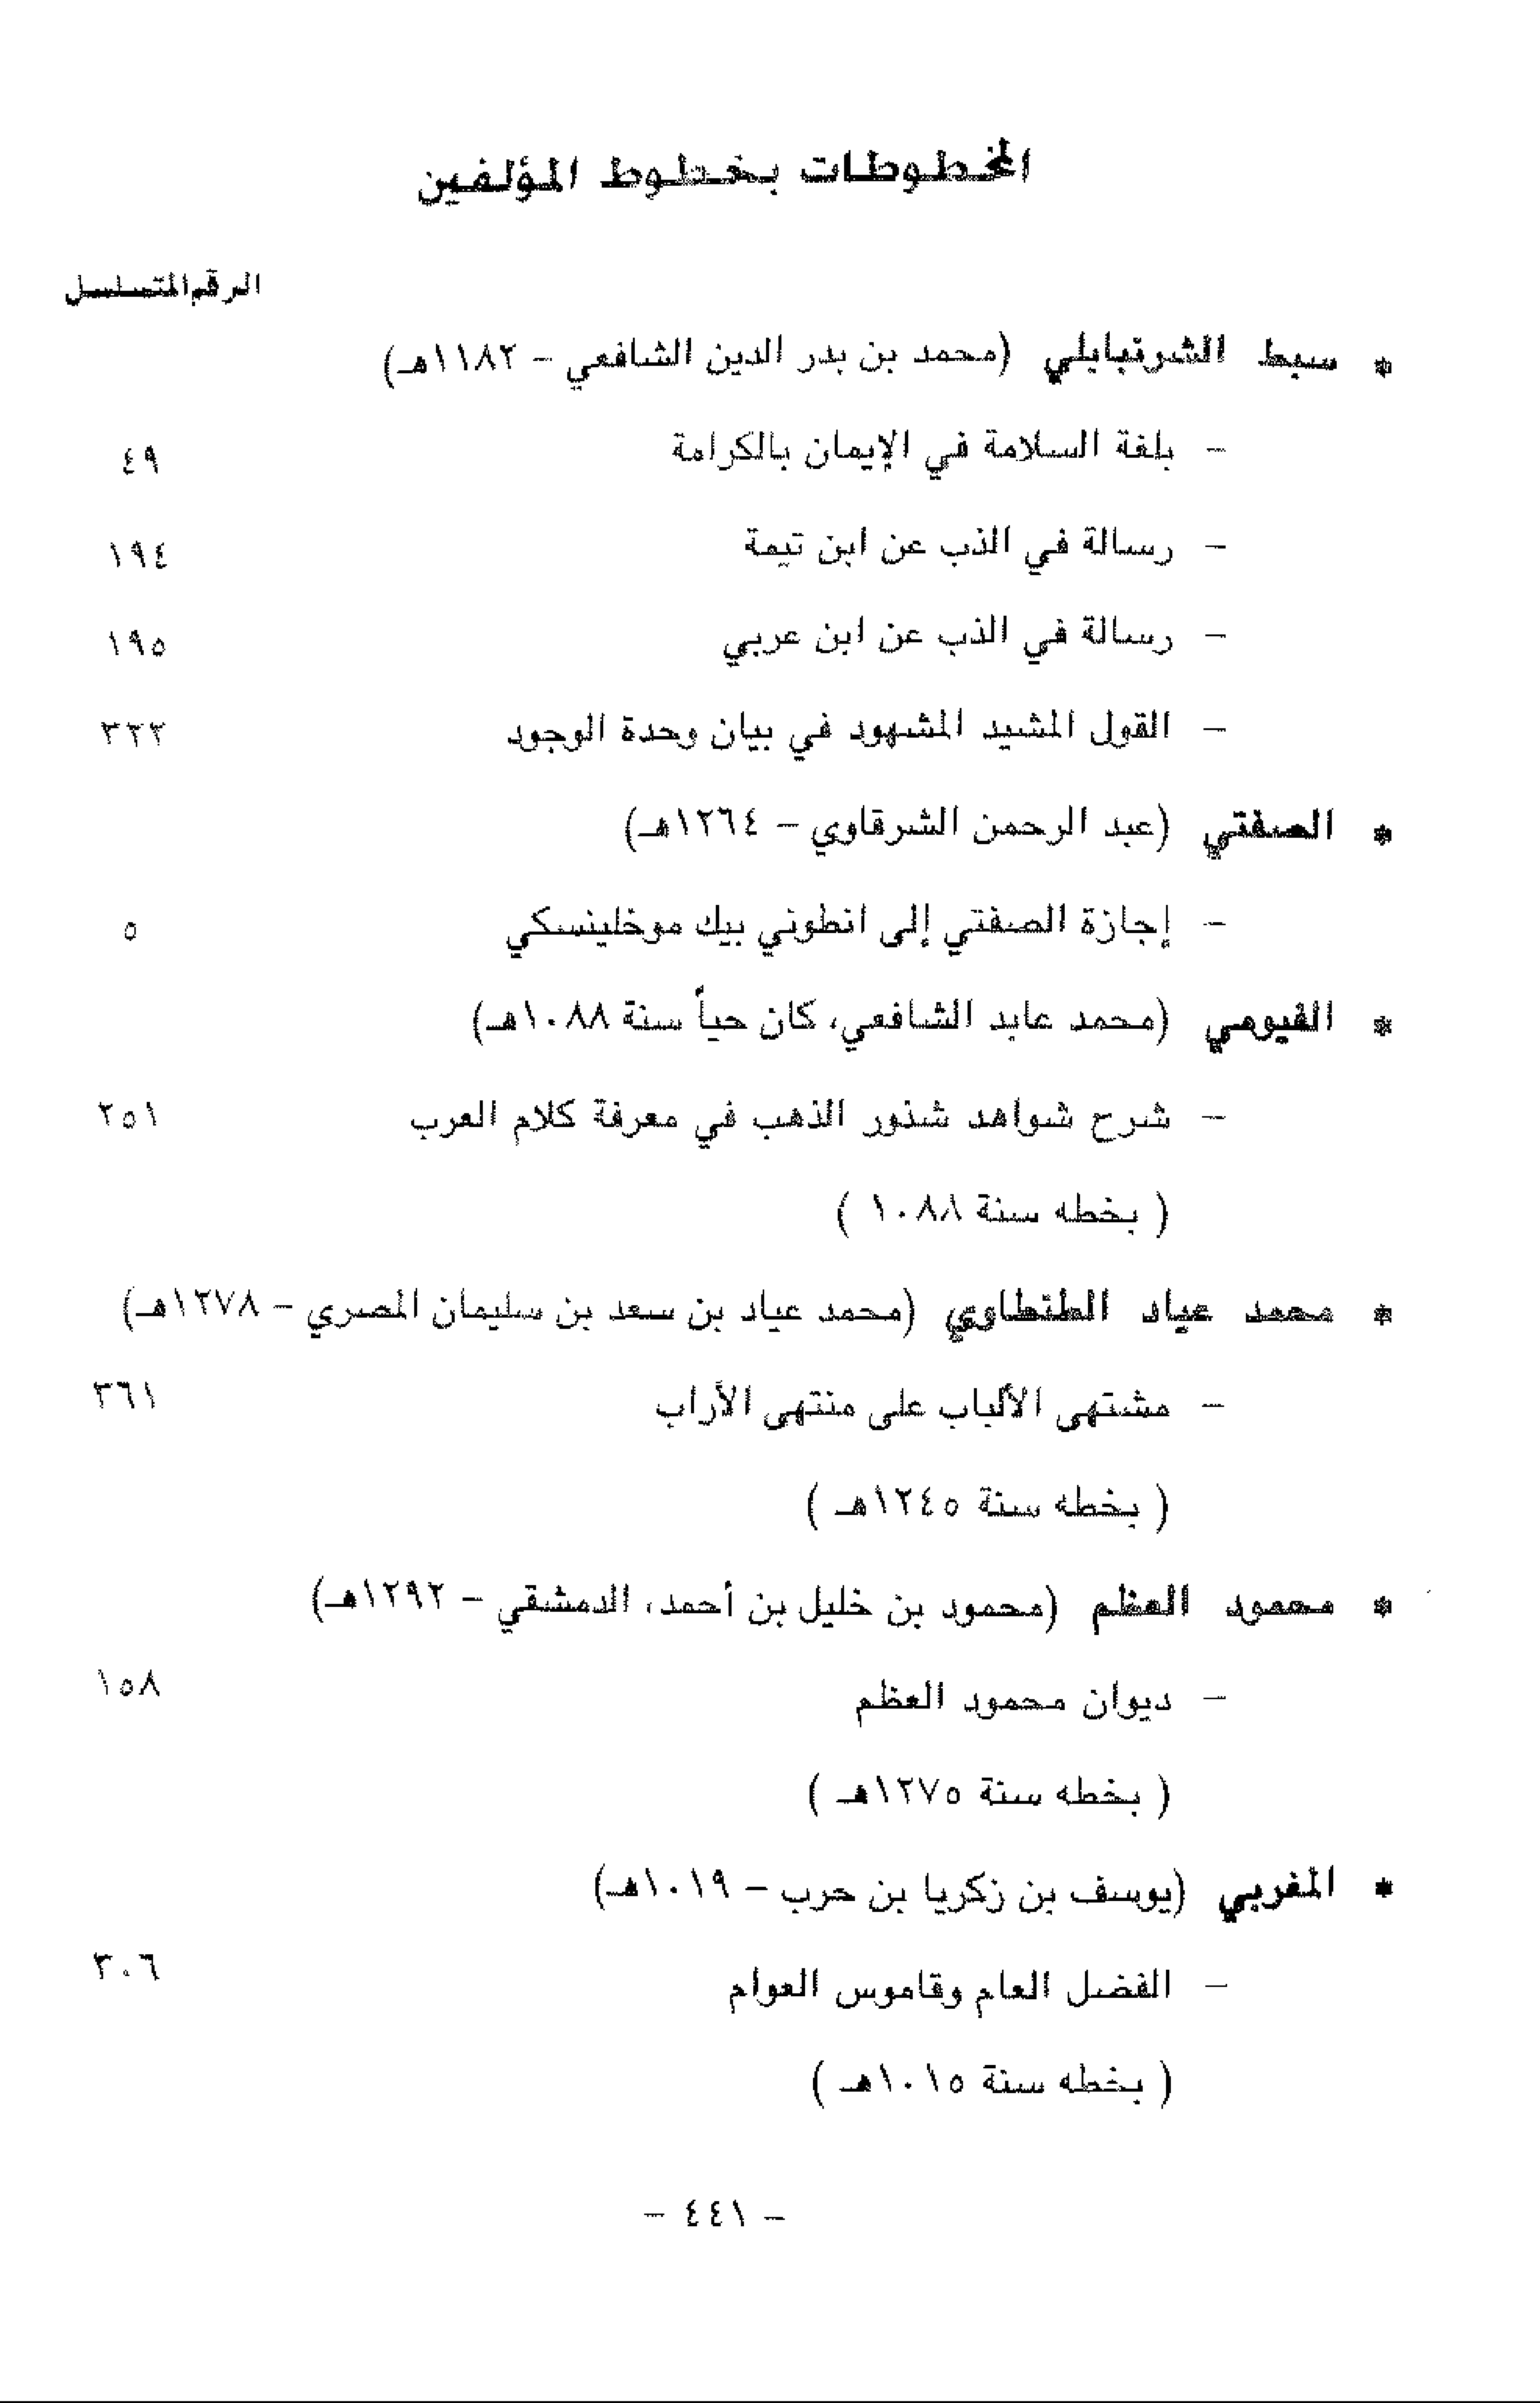 المخطوطات بخطوط المؤلفين
الرقم المتسلسل
* سبط الشرنبابلي (محمد بن بدر الدين الشافعي - ١١٨٢هـ)
- بلغة السلامة في الإيمان بالكرامة ٤٩
- رسالة في الذب عن ابن تيمة ١٩٤
- رسالة في الذب عن ابن عربي ١٩٥
- القول المشيد المشهود في بيان وحدة الوجود ٣٢٢
* الصفتي (عبد الرحمن الشرقاوي - ١٢٦٤هـ)
- إجازة الصفتي إلى انطوني بيك موخلينسكي ٥
* الفيومي (محمد عابد الشافعي، كان حياً سنة ١٠٨٨هـ)
- شرح شواهد شذور الذهب في معرفة كلام العرب ٢٥١
( بخطه سنة ١٠٨٨ )
* محمد عياد الطنطاوي (محمد عياد بن سعد بن سليمان المصري - ١٢٧٨هـ)
- مشتهى الألباب على منتهى الأراب ٣٦١
( بخطه سنة ١٢٤٥هـ )
* محمود العظم (محمود بن خليل بن أحمد، الدمشقي - ١٢٩٢هـ)
- ديوان محمود العظم ١٥٨
( بخطه سنة ١٢٧٥هـ )
* المغربي (يوسف بن زكريا بن حرب - ١٠١٩هـ)
- الفضل العام وقاموس العوام ٣٠٦
( بخطه سنة ١٠١٥هـ )
- ٤٤١ -